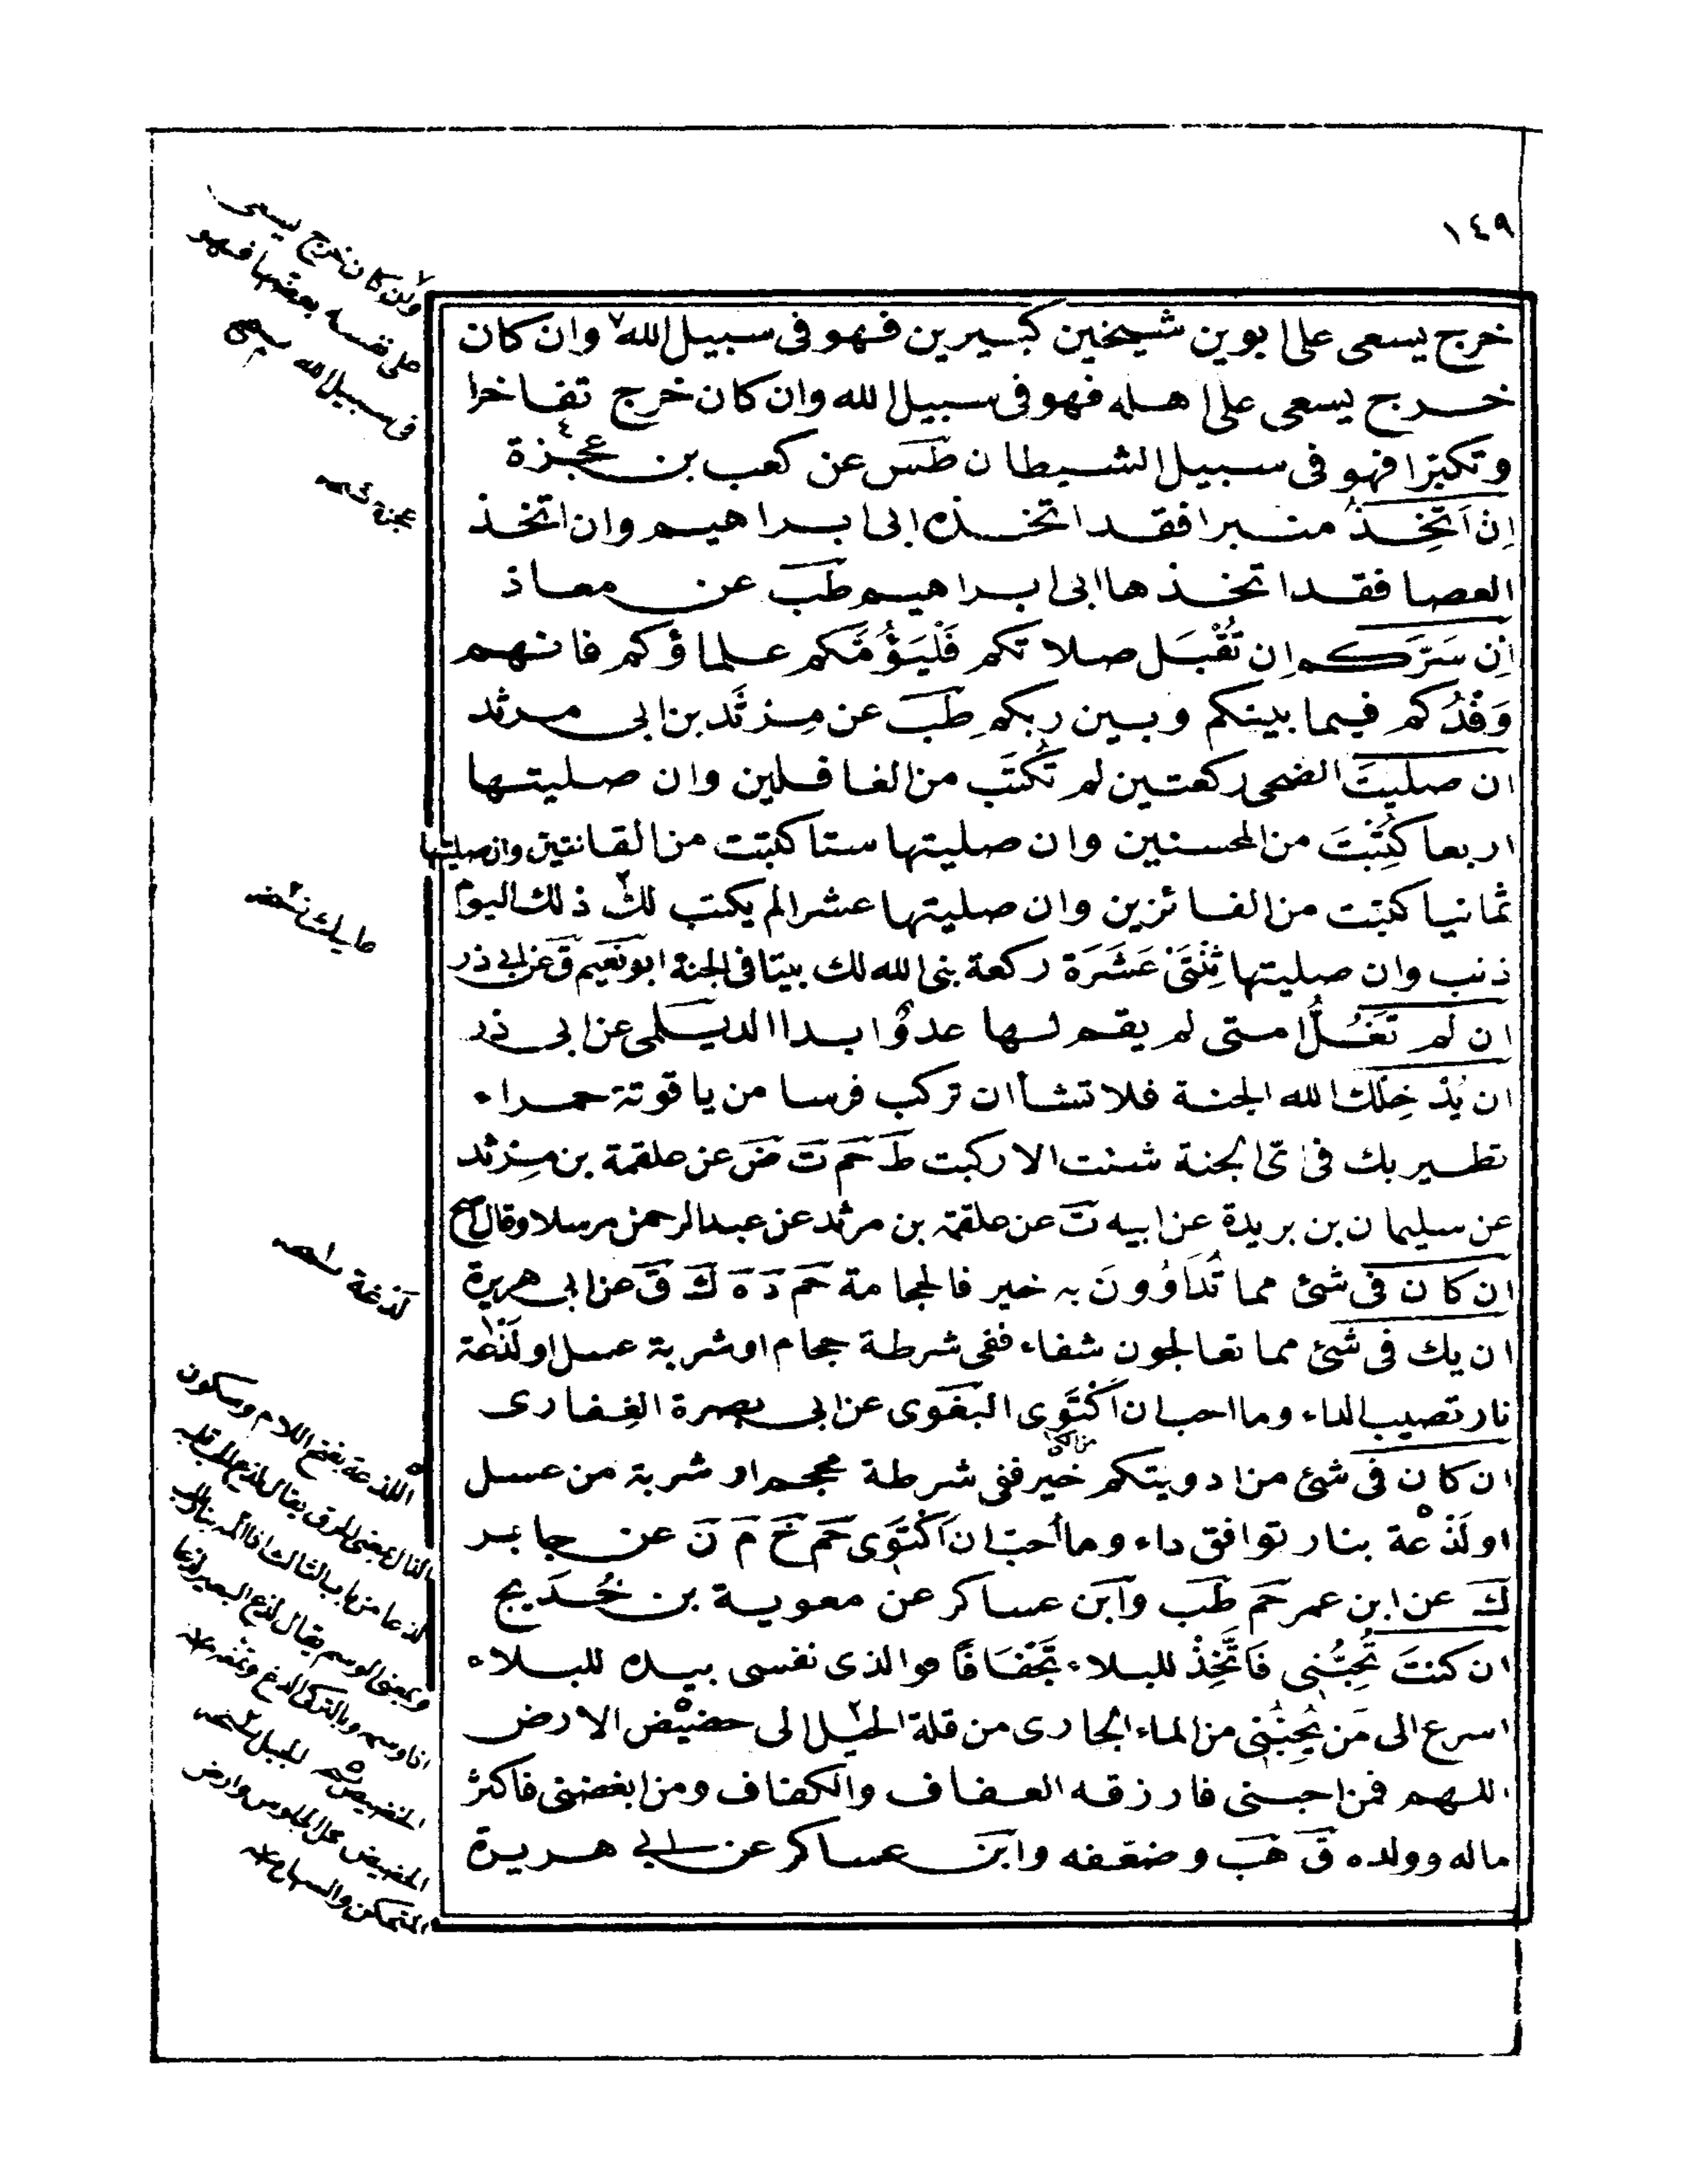 ١٤٩
خرج يسعى على ابوين شيخين كبيرين فهو فى سبيل الله٧ وان كان
خرج يسعى على اهله فهو فى سبيل الله وان كان خرج تفاخرا
وتكبّرا فهو فى سبيل الشيطان طس عن كعب بن عجزة٤
اِنْ اَتَّخِذُ منبرا فقد اتخذه ابى ابراهيم وان اتخذ
العصا فقد اتخذها ابى ابراهيم طب عن معاذ
اِن سَرَّكم ان تُقْبَل صلاتكم فَلْيَؤُمَّكم علماؤكم فانهم
وَفْدُكم فيما بينكم وبين ربكم طب عن مِرْثَد بن ابى مرثد
ان صليتَ الضحى ركعتين لم تُكتَب من الغافلين وان صليتها
اربعا كُتِبْتَ من المحسنين وان صليتها ستا كتبت من القانتين وان صليتها
ثمانيا كتبت من الفائزين وان صليتها عشرا لم يكتب لك٢ ذلك اليوم
ذنب وان صليتها ثِنْتَىْ عَشَرَة ركعة بنى الله لك بيتا فى الجنة ابو نعيم ق عن ابى ذر
ان لم تَغُلَّ امتى لم يقم لها عدوٌّ ابدا الديلمى عن ابى ذر
ان يُدْخِلْك الله الجنة فلا تشأ ان تركب فرسا من ياقوتة حمراء
تطير بك فى اىّ الجنة شئت الا ركبت ط حم ت ض عن علقمة بن مِرْثد
عن سليمان بن بريدة عن ابيه ت عن علقمة بن مرثد عن عبد الرحمن مرسلا وقال اصح
ان كان فى شئ مما تُدَاوُونَ به خير فالحجامة حم د ه ك ق عن ابى هريرة
ان يك فى شئ مما تعالجون شفاء ففى شرطة حجام او شربة عسل او لَذْعة١
نار تصيب الداء وما احب ان اَكْتَوِى البغوى عن ابى بصرة الغِفارى
ان كان فى شئ من ادويتكم خير ففى شرطة محجم او شربة من عسل
او لَذْعة٥ بنار توافق داء وما اُحبّ ان اَكْتَوِى حم خ م ن عن جابر
ك عن ابن عمر حم طب وابن عساكر عن معوية بن خُدَيج
ان كنتَ تُحِبُّنى فَاتَّخِذْ للبلاء تَجْفَافًا فوالذى نفسى بيده للبلاء
اسرع الى مَن يُحِبُّنى من الماء الجارى من قلة الجبل٢ الى حضيض٥ الارض
اللهم فمن احبنى فارزقه العفاف والكفاف ومن ابغضنى فاكثر
ماله وولده ق هب وضعّفه وابن عساكر عن ابى هريرة
٧ وان كان خرج يسعى
على نفسه يعفها فهو
فى سبيل الله صح
عجرة نسخه
لَدْغة نسخه
٥ اللذعة بفتح اللام وسكون